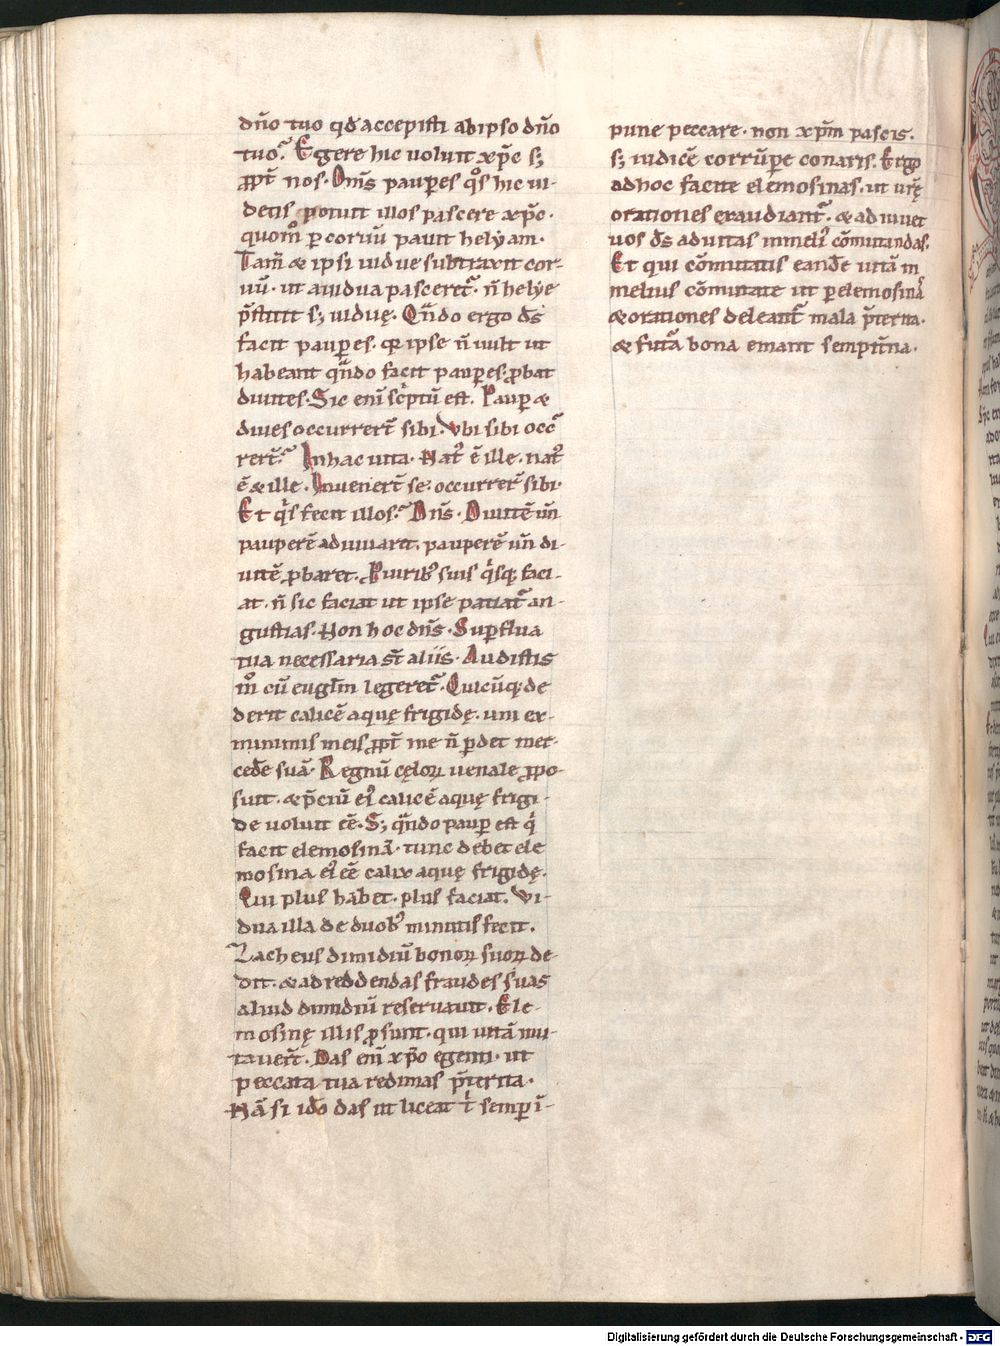 dño tuo qd accepisti ab ipso dño
tuo. Egere hic uoluit xp̄c s;
ꝓpt̄ nos. Om̄s pauꝑes qͦs hic ui-
detis potuit illos pascere xp̄c.
quomͦ ꝑ coruū pauit helyam.
Tam̄ & ipsi uidue subtraxit cor-
uū. ut a uidua pasceret᷑. ñ helye
p̄stitit s; uiduę. Qn̄do ergo d̄s
facit pauꝑes. qꝛ ipse ñ uult ut
habeant qn̄do facit pauꝑes. ꝓbat
diuites. Sic eni scͥptū est. Pauꝑ &
diues occurrert̄ sibi. Vbi sibi occͬ
rert̄. In hac uita. Natꝰ ē ille. natꝰ
ē & ille. Inuenert̄ se. occurrert̄ sibi.
Et qͥs fecit illos. Dn̄s. Diuitē un̄
pauperē adiuuaret. pauperē un̄ di-
uitē ꝓbaret. P uiribꝰ suis qͥsq; faci-
at. ñ sic faciat ut ipse patiat᷑ an-
gustias. Non hoc dn̄s. Suꝑflua
tua necessaria st̄ aliis. Audistis
mͦ cū eugl̄m legeret᷑. Quicūq; de
derit calicē aquę frigidę. uni ex
minimis meis ꝓpt̄ me ñ ꝑdet mer-
cedē suā. Regnū cęloꝝ uenale ꝓpo-
suit. & p̄ciū eiꝰ calicē aquę frigi-
de uoluit ēē. S; qn̄do pauꝑ est qͥ
facit elemosinā. tunc debet ele
mosina eiꝰ ēē calix aquę frigidę.
Qui plus habet. plus faciat. Vi-
dua illa de duobꝰ minutis fecit.
Zacheus dimidiū bonoꝝ suoꝝ de-
dit. & ad reddendas fraudes suas
aliud dimidiū reseruauit. Ele-
mosinę illis ꝓsunt. qui uitā mu-
tauert̄. Das eni xp̄o egenti. ut
peccata tua redimas p̄terita.
Nā si idō das ut liceat tͥ semꝑ ī-
pune peccare. non xp̄m pascis.
s; iudicē corrūꝑe conaris. Ergo
ad hoc facite elemosinas. ut ur̄ę
orationes exaudiant᷑. & adiuuet
uos d̄s ad uitas in meliꝰ cōmutandas.
Et qui cōmutatis eandē uitā in
melius cōmutate ut ꝑ elemosinā
& orationes deleant᷑ mala p̄terita.
& futā bona emant sempit̄na.
Digitalisierung gefördert durch die Deutsche Forschungsgemeinschaft - DFG